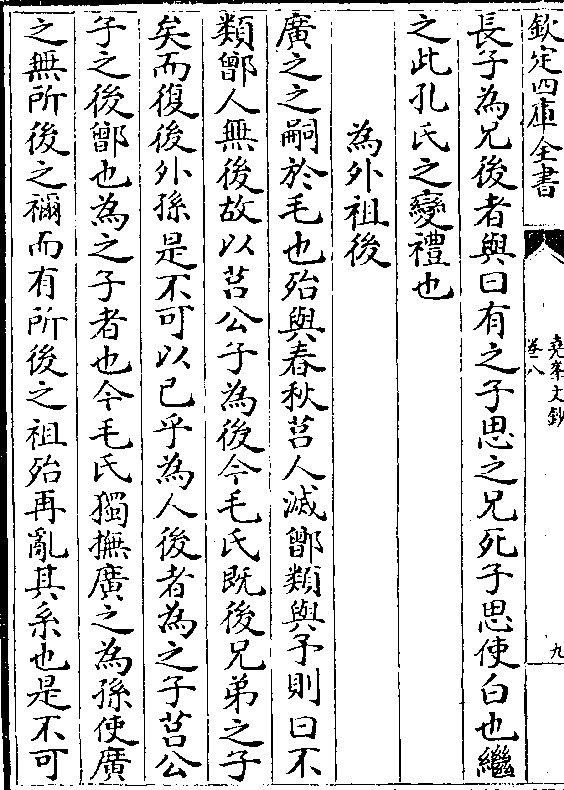 欽定四庫全書
堯峯文鈔
卷八
九
長子為兄後者與曰有之子思之兄死子思使白也繼
之此孔氏之變禮也
為外祖後
廣之之嗣於毛也殆與春秋莒人滅鄫類與予則曰不
類鄫人無後故以莒公子為後今毛氏既後兄弟之子
矣而復後外孫是不可以已乎為人後者為之子莒公
子之後鄫也為之子者也今毛氏獨撫廣之為孫使廣
之無所後之禰而有所後之祖殆再亂其系也是不可